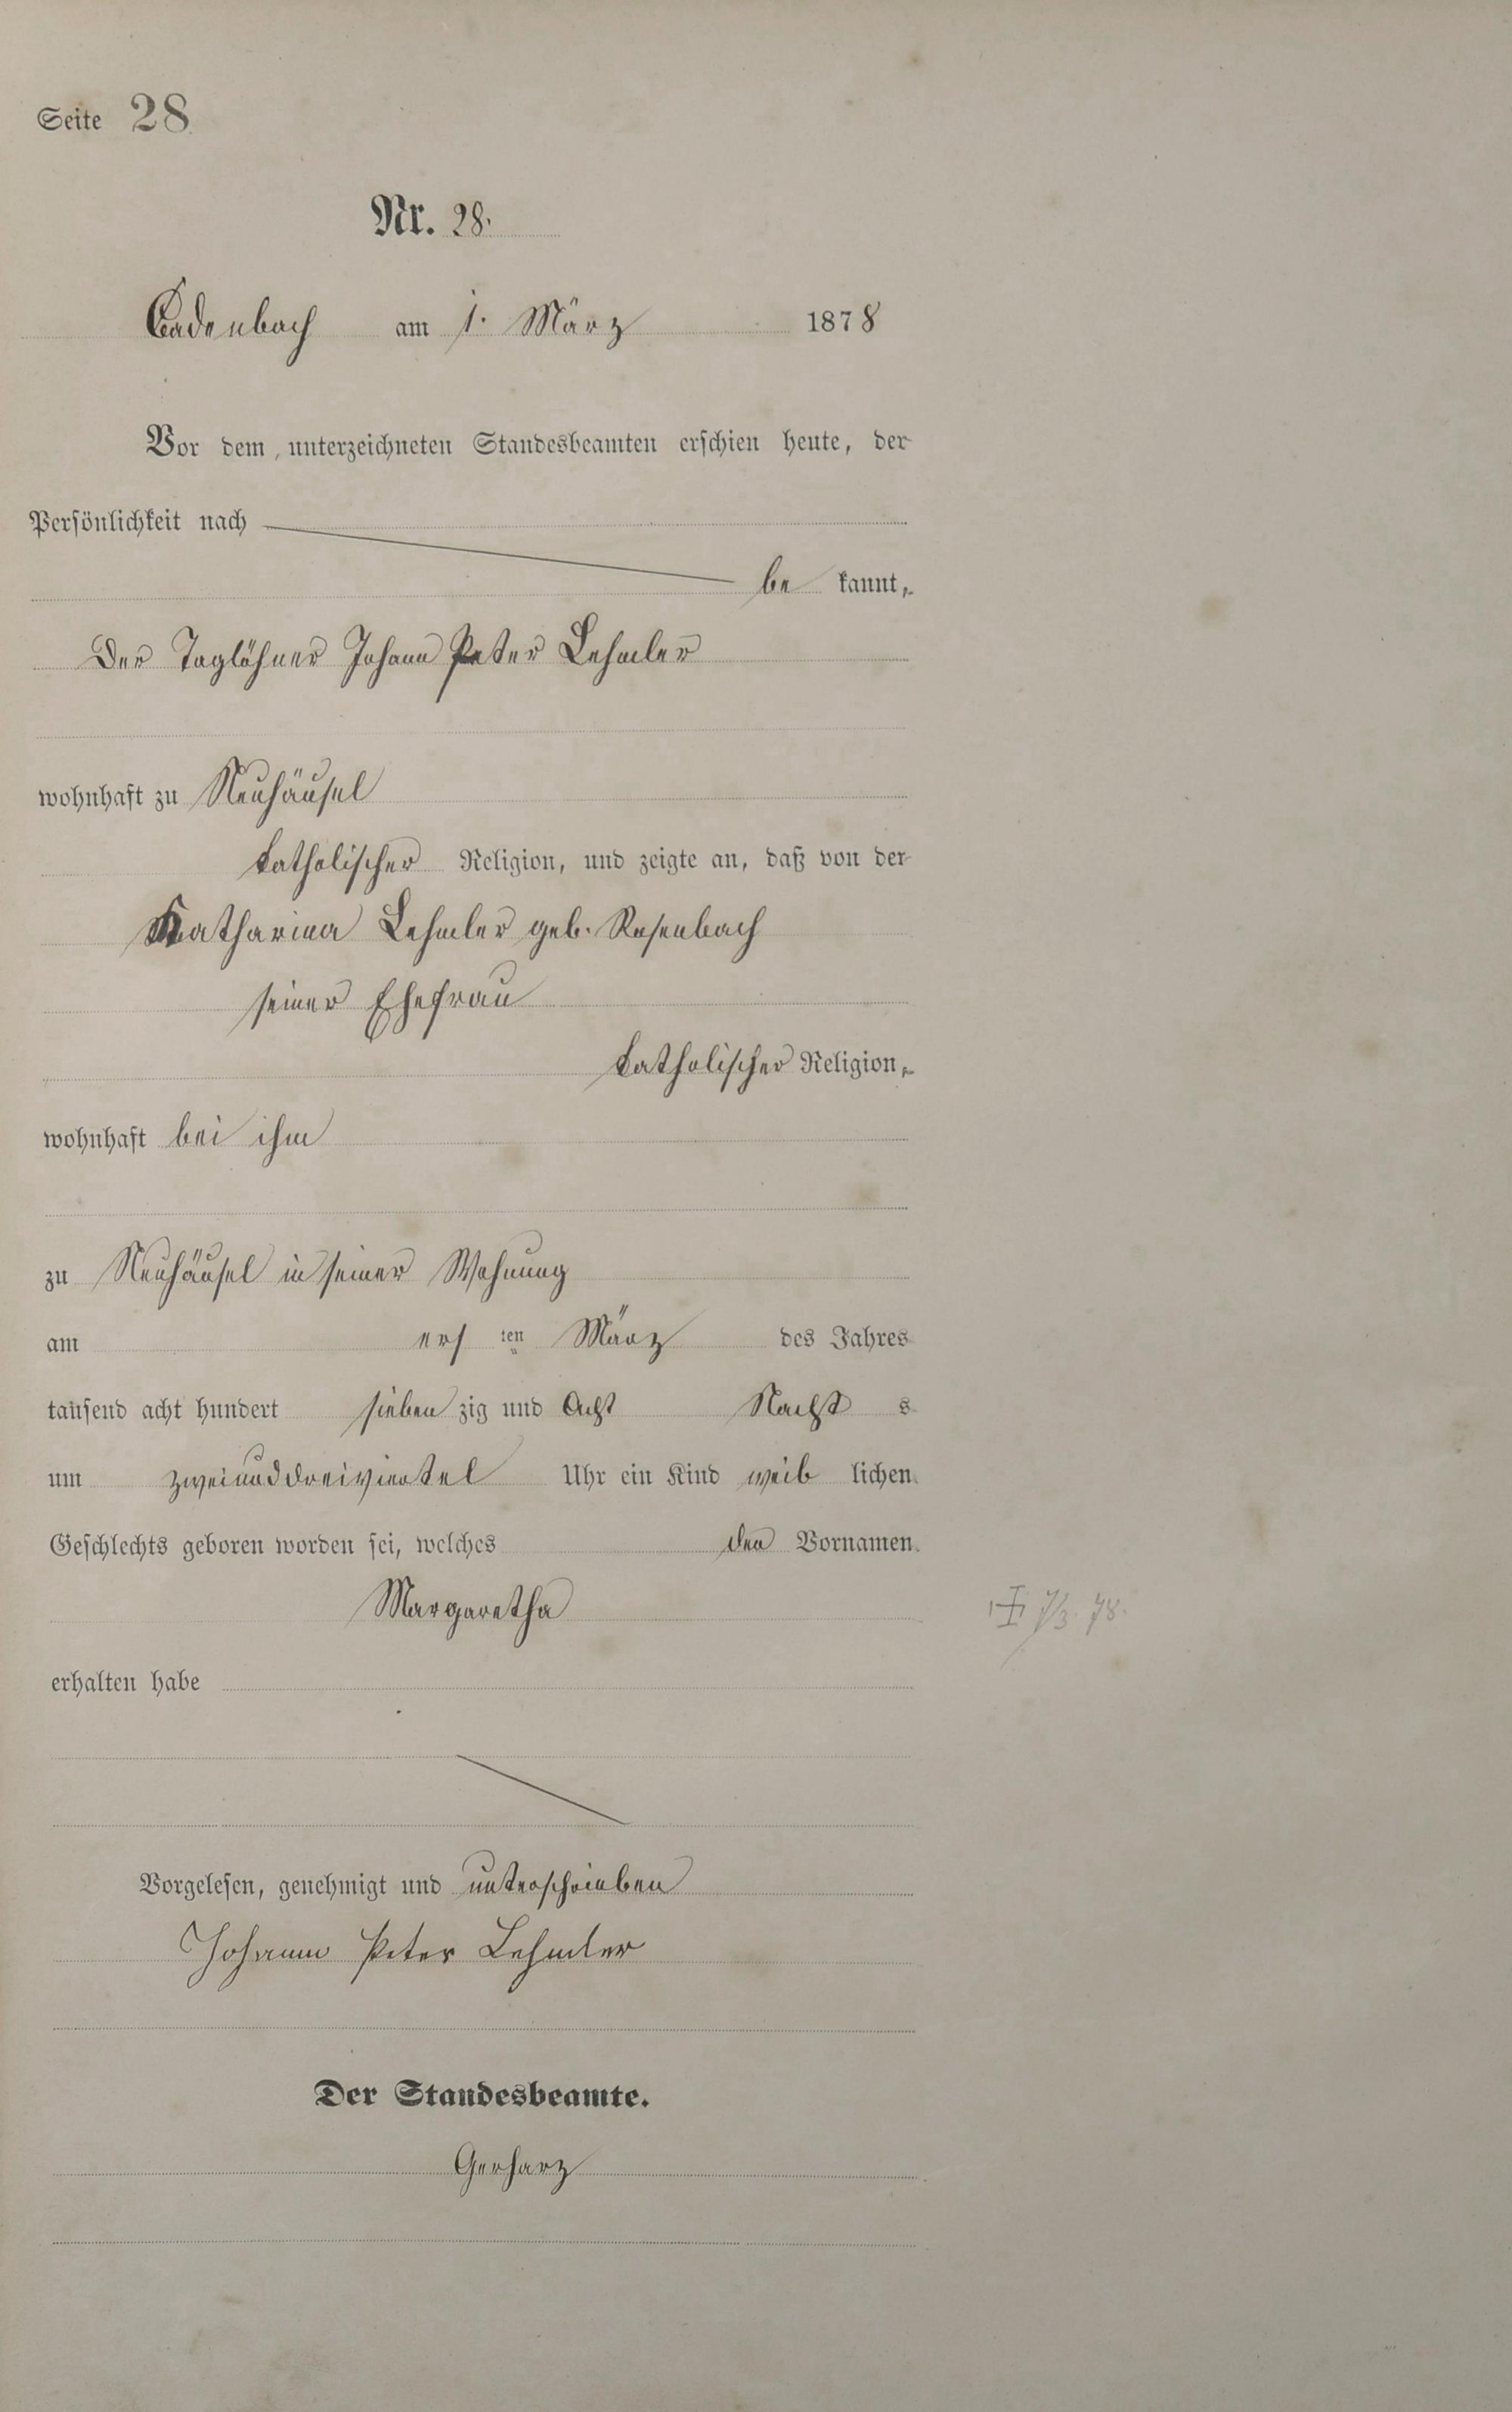 Seite 28
Nr. 28.
Cadenbach am 1. März 1878
Vor dem unterzeichneten Standesbeamten erschien heute, der
Persönlichkeit nach
be kannt,
Der Taglöhner Johann Peter Lehmler
wohnhaft zu Neuhäusel
katholischer Religion, und zeigte an, daß von der
Katharina Lehmler geb. Rosenbach
seiner Ehefrau
katholischer Religion,
wohnhaft bei ihm
zu Neuhäusel in seiner Wohnung
am ers ten März des Jahres
tausend acht hundert sieben zig und Acht Nacht s
um zweiunddreiviertel Uhr ein Kind weib lichen
Geschlechts geboren worden sei, welches den Vornamen
Margaretha
7/3. 78.
erhalten habe
Vorgelesen, genehmigt und unterschrieben
Johann Peter Lehmler
Der Standesbeamte.
Gerharz